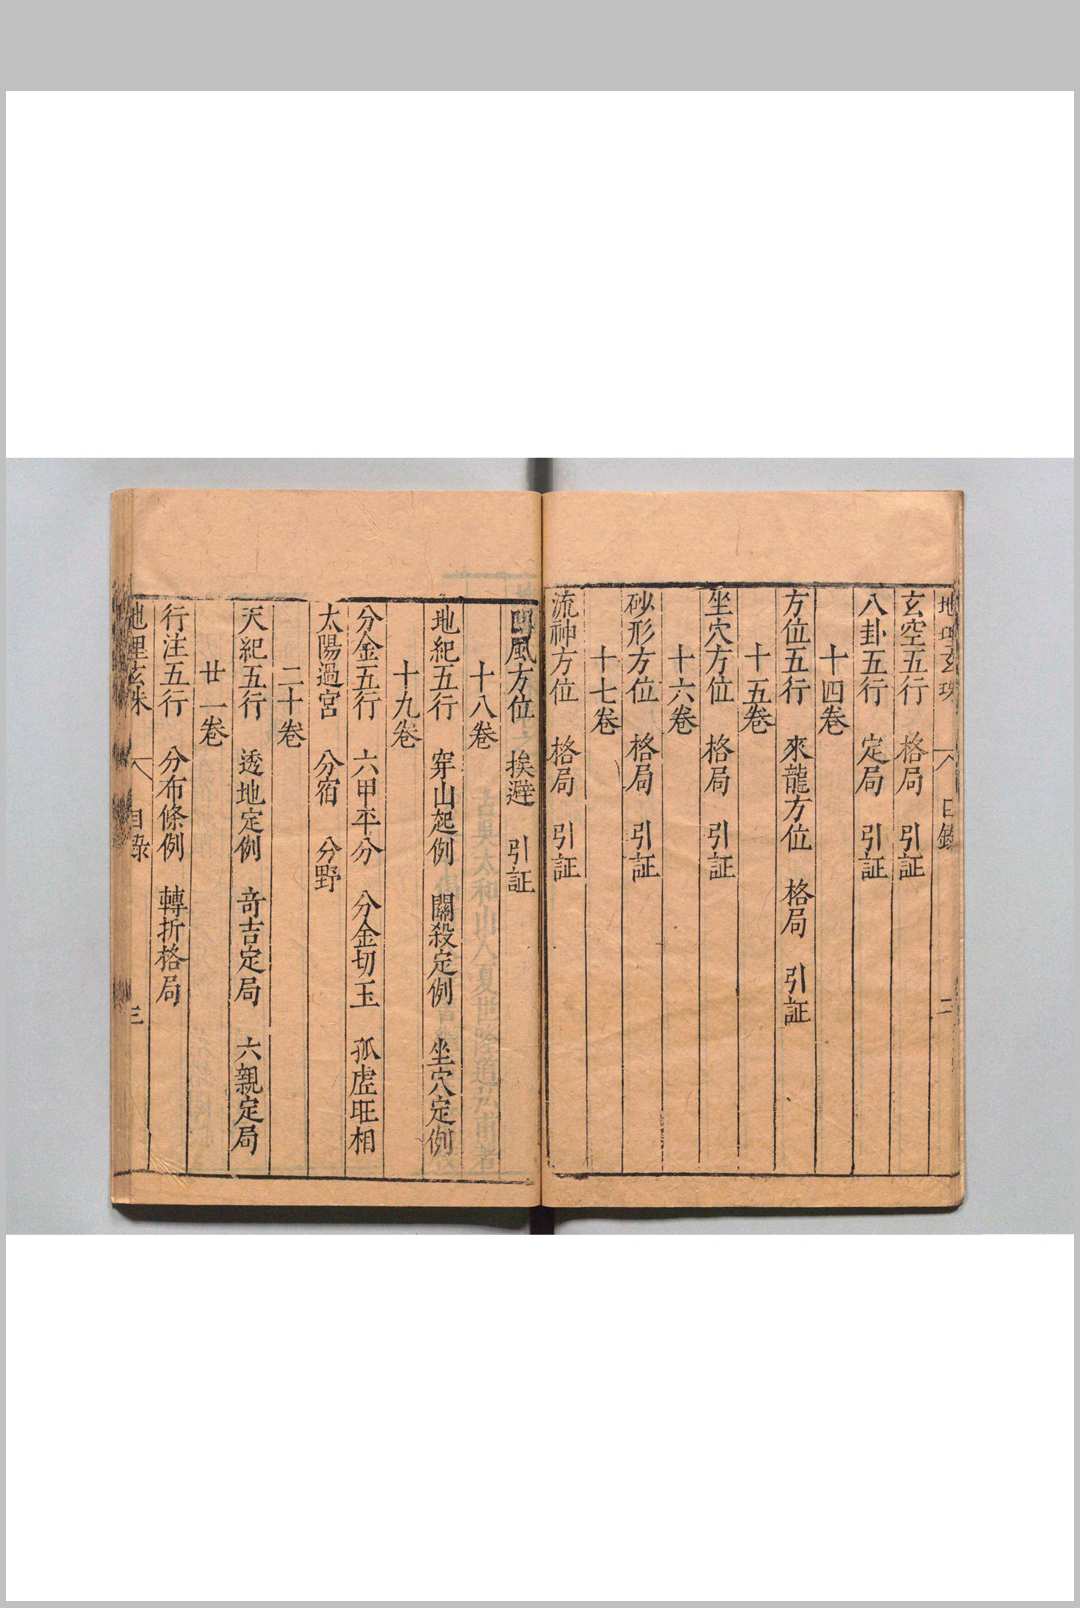 地理玄珠 目錄 二
玄空五行 格局 引証
八卦五行 定局 引証
十四卷
方位五行 來龍方位 格局 引証
十五卷
坐穴方位 格局 引証
十六卷
砂形方位 格局 引証
十七卷
流神方位 格局 引証
風方位 挨避 引証
十八卷
地紀五行 穿山起例 關殺定例 坐穴定例
十九卷
分金五行 六甲平分 分金切玉 孤虛旺相
太陽過宮 分宿 分野
二十卷
天紀五行 透地定例 奇吉定局 六親定局
廿一卷
行注五行 分布條例 轉折格局
地理玄珠 目錄 三